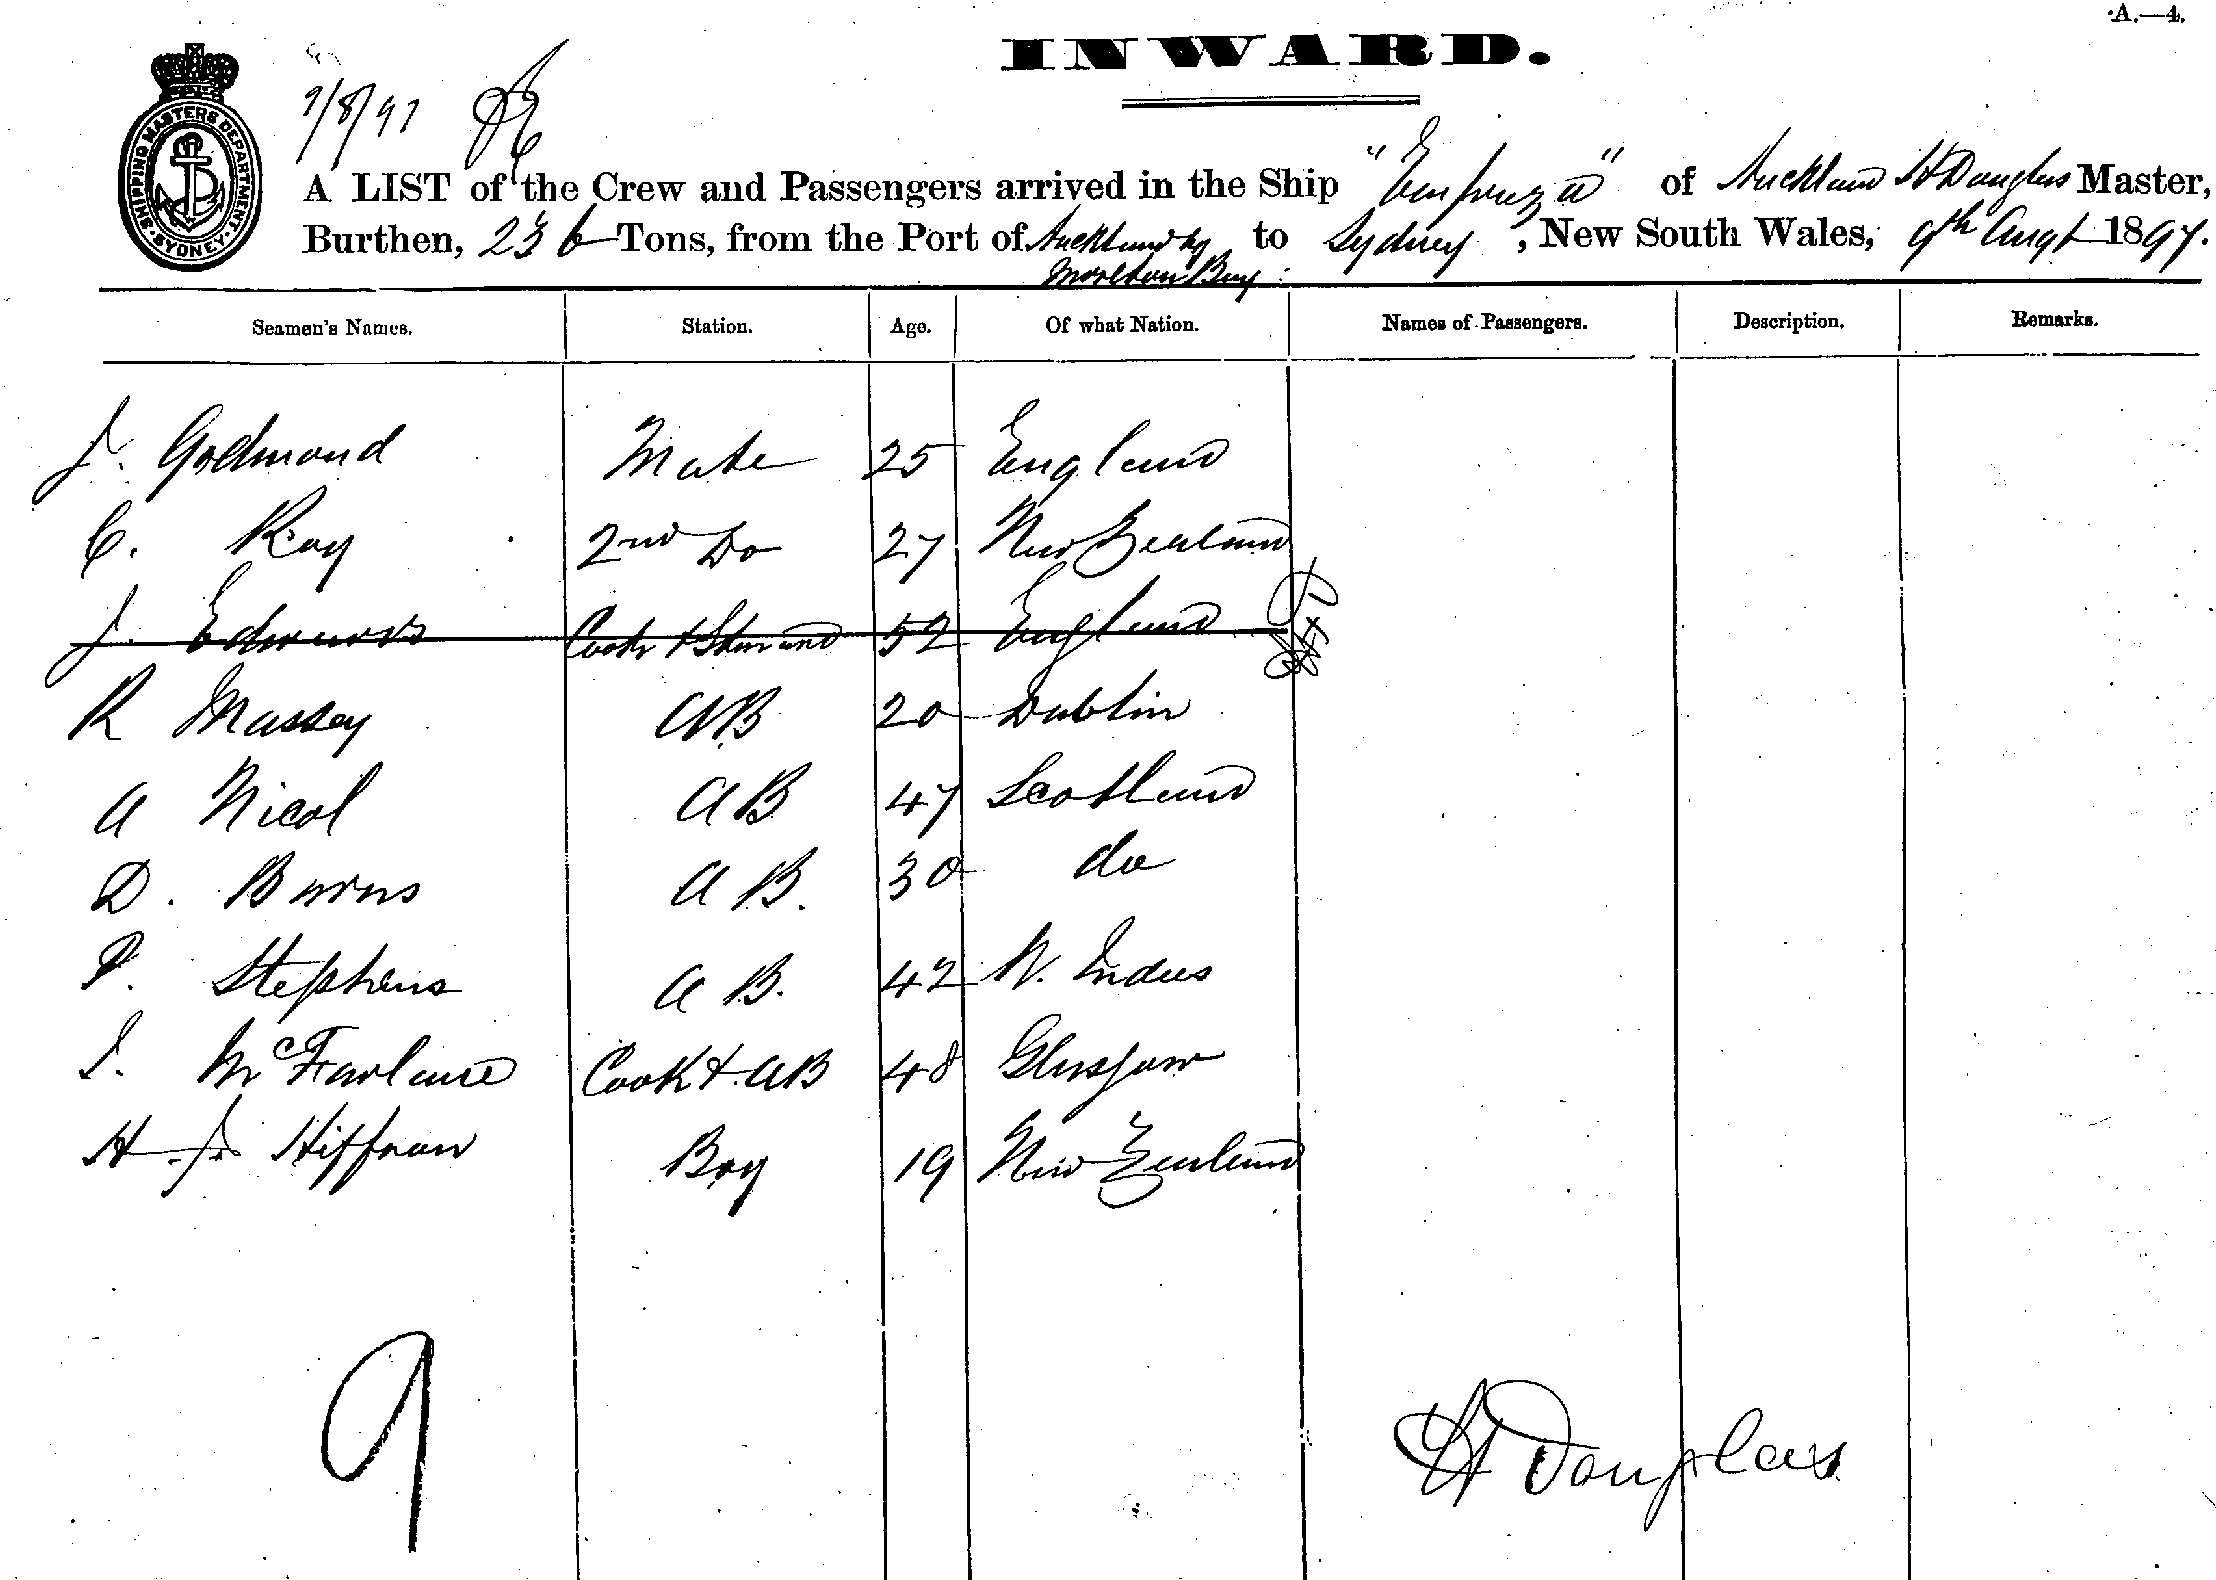 A.—4.
INWARD.
SHIPPING MASTERS DEPARTMENT. SYDNEY.
9/8/97
A LIST of the Crew and Passengers arrived in the Ship " " of Auckland H Douglas Master,
Burthen, 236 Tons, from the Port of Auckland to Sydney, New South Wales, 9th Augt 1897.
Moreton Bay
Seamen's Names. Station. Age. Of what Nation. Names of Passengers. Description. Remarks.
J. Godmond Mate 25 England
C. Roy 2nd Do 27 New Zealand
J. Edwards Cook & Steward 52 England
R Massey AB 20 Dublin
A Nicol AB 47 Scotland
D. Burns AB. 30 do
P. Stephens AB. 42 W. Indies
McFarlane Cook & AB 48 Glasgow
H J. Hiffnan Boy 19 New Zealand
9
H Douglas